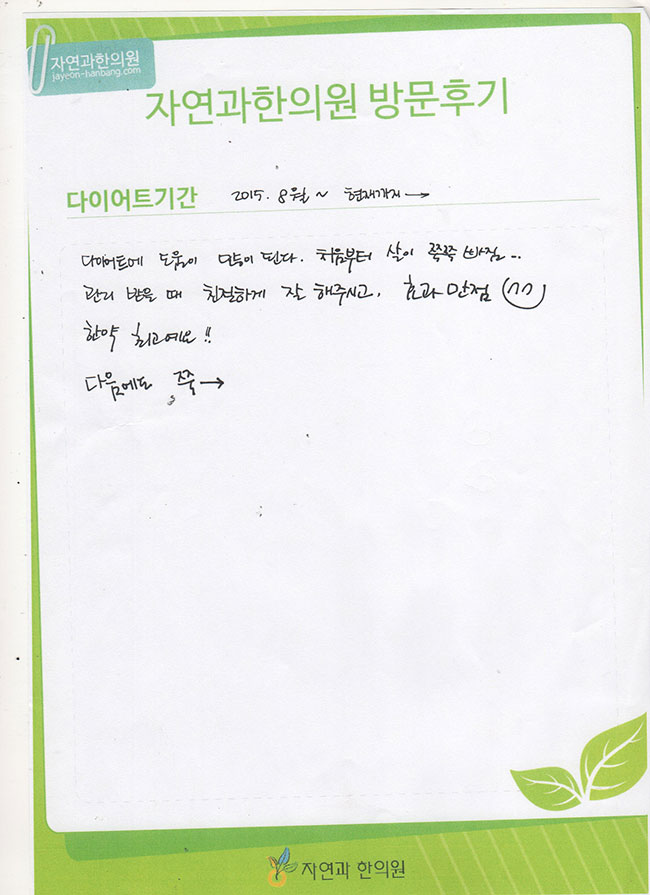 자연과한의원
jayeon-hanbang.com
자연과한의원 방문후기
다이어트기간 2015. 8월 ~ 현재까지 →
다이어트에 도움이 많이 된다. 처음부터 살이 쭉쭉 빠짐...
관리 받을 때 친절하게 잘 해주시고, 효과 만점 (^^)
한약 최고예요!!
다음에도 쭉 →
자연과 한의원